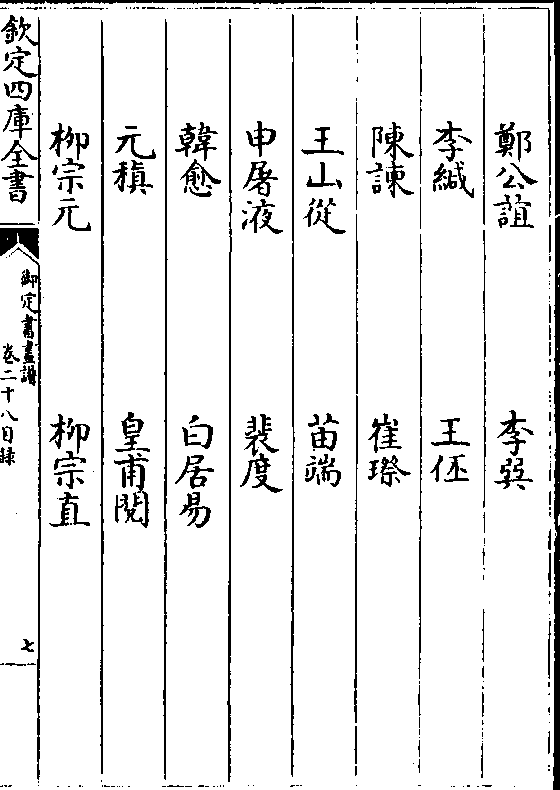 鄭公誼　李巽
李緘　王伾
陳諫　崔𤩽
王山從　苗端
申屠液　裴度
韓愈　白居易
元稹　皇甫閱
柳宗元　柳宗直
欽定四庫全書
御定書畫譜
卷二十八目録
七